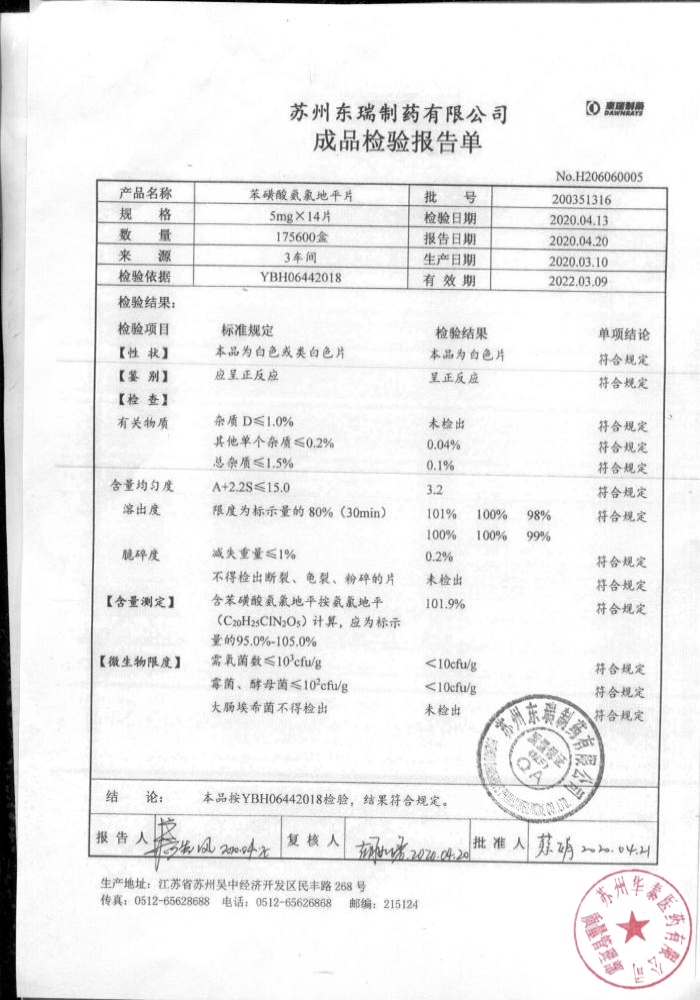 苏州东瑞制药有限公司
東瑞制藥
DAWNRAYS
成品检验报告单
No.H206060005
产品名称 苯磺酸氨氯地平片 批 号 200351316
规 格 5mg×14片 检验日期 2020.04.13
数 量 175600盒 报告日期 2020.04.20
来 源 3车间 生产日期 2020.03.10
检验依据 YBH06442018 有 效 期 2022.03.09
检验结果:
检验项目 标准规定 检验结果 单项结论
【性 状】 本品为白色或类白色片 本品为白色片 符合规定
【鉴 别】 应呈正反应 呈正反应 符合规定
【检 查】
有关物质 杂质 D≤1.0% 未检出 符合规定
其他单个杂质≤0.2% 0.04% 符合规定
总杂质≤1.5% 0.1% 符合规定
含量均匀度 A+2.2S≤15.0 3.2 符合规定
溶出度 限度为标示量的 80%（30min） 101% 100% 98% 符合规定
100% 100% 99%
脆碎度 减失重量≤1% 0.2% 符合规定
不得检出断裂、龟裂、粉碎的片 未检出 符合规定
【含量测定】 含苯磺酸氨氯地平按氨氯地平 101.9% 符合规定
（C20H25ClN2O5）计算，应为标示
量的95.0%-105.0%
【微生物限度】 需氧菌数≤10³cfu/g <10cfu/g 符合规定
霉菌、酵母菌≤10²cfu/g <10cfu/g 符合规定
大肠埃希菌不得检出 未检出 符合规定
苏州东瑞制药有限公司
QA
结 论: 本品按YBH06442018检验，结果符合规定。
报 告 人 复 核 人 2020.04.20 批 准 人 2020.04.21
生产地址: 江苏省苏州吴中经济开发区民丰路 268 号
传真: 0512-65628688 电话: 0512-65626868 邮编: 215124
苏州华泰医药有限公司
质量管理部